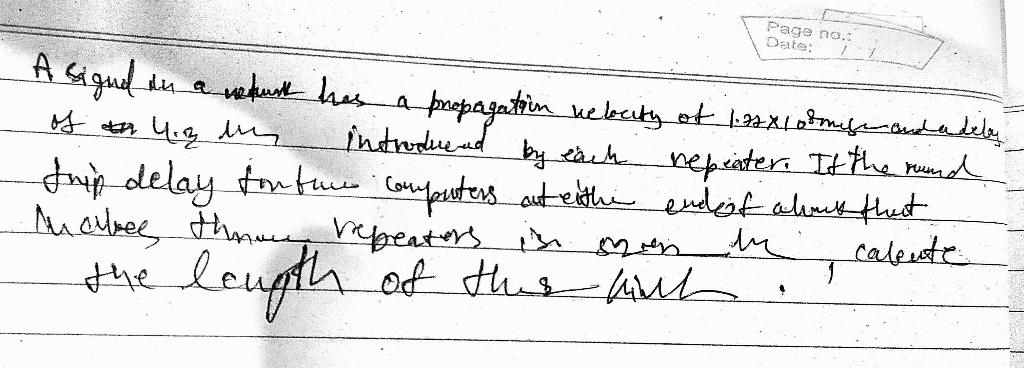 Page no.:
Date: / /
A signal in a network has a propagation velocity of 1.77×10⁸ m/s and a delay
of 4.2 introduced by each repeater. If the round
trip delay for two computers at either end of a link that
involves three repeaters is, calculate
the length of this link.